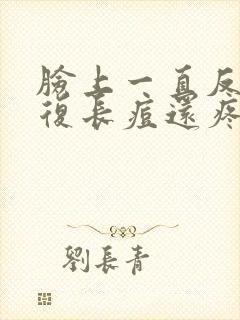 臉上一直反
復長痘還疼
劉長青